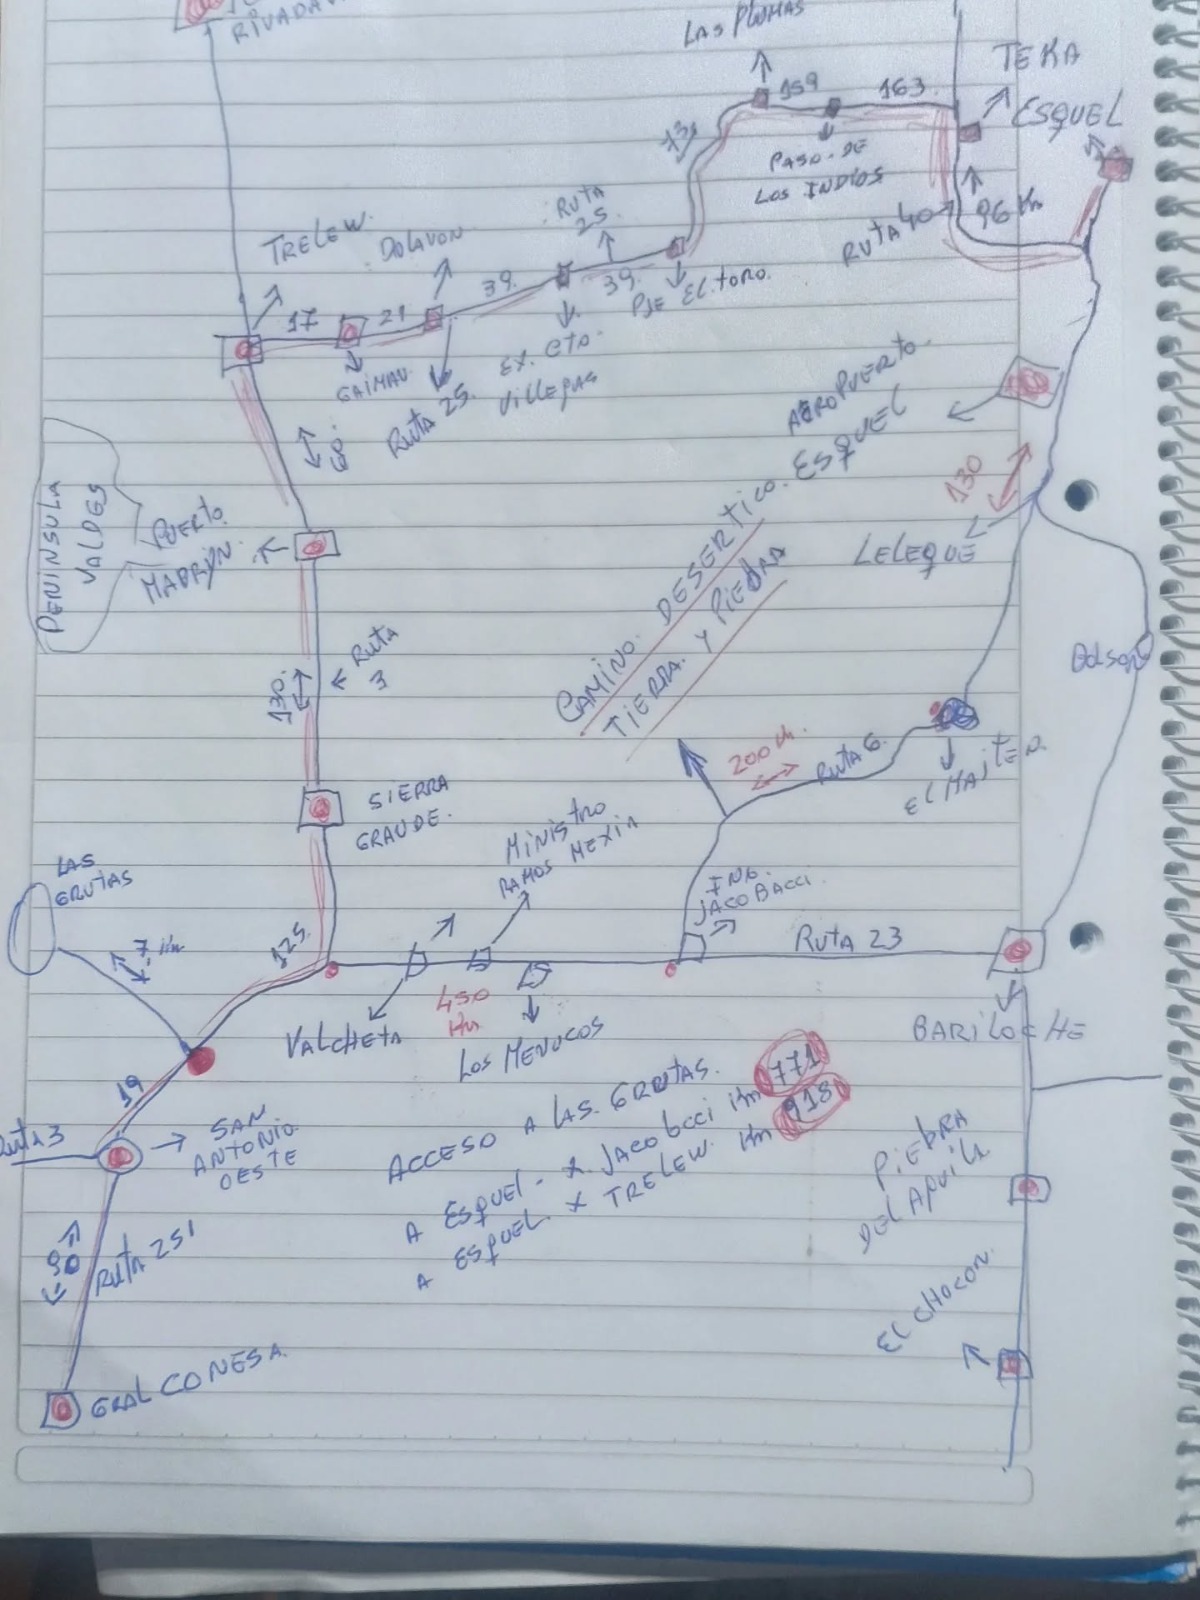 RIVADAV
LAS PLUMAS
TEKA
ESQUEL
159
163
73
PASO-DE
LOS INDIOS
RUTA 40
96 Km
RUTA
25.
TRELEW.
DOLAVON
17
21
39.
39.
PJE EL TORO.
GAIMAN.
RUTA 25.
EX. CTO.
VILLEGAS
AEROPUERTO.
ESQUEL
130
LELEQUE
PENINSULA
VALDES
PUERTO
MADRYN.
CAMINO. DESERTICO.
TIERRA. Y PIEDRA
130.
RUTA
3
BOLSON
200 Km.
RUTA 6.
EL MAITEN.
SIERRA
GRANDE.
MINISTRO
RAMOS MEXIA
ING.
JACOBACCI.
LAS
GRUTAS
7 Km
125.
RUTA 23
VALCHETA
450
Km
LOS MENUCOS
BARILOCHE
19
RUTA 3
SAN
ANTONIO.
OESTE
ACCESO A LAS. GRUTAS.
A ESQUEL - X. JACOBCCI Km 771
A ESQUEL X TRELEW. Km 918
PIEDRA
DEL AGUILA
90
RUTA 251
EL CHOCON.
GRAL CONESA.